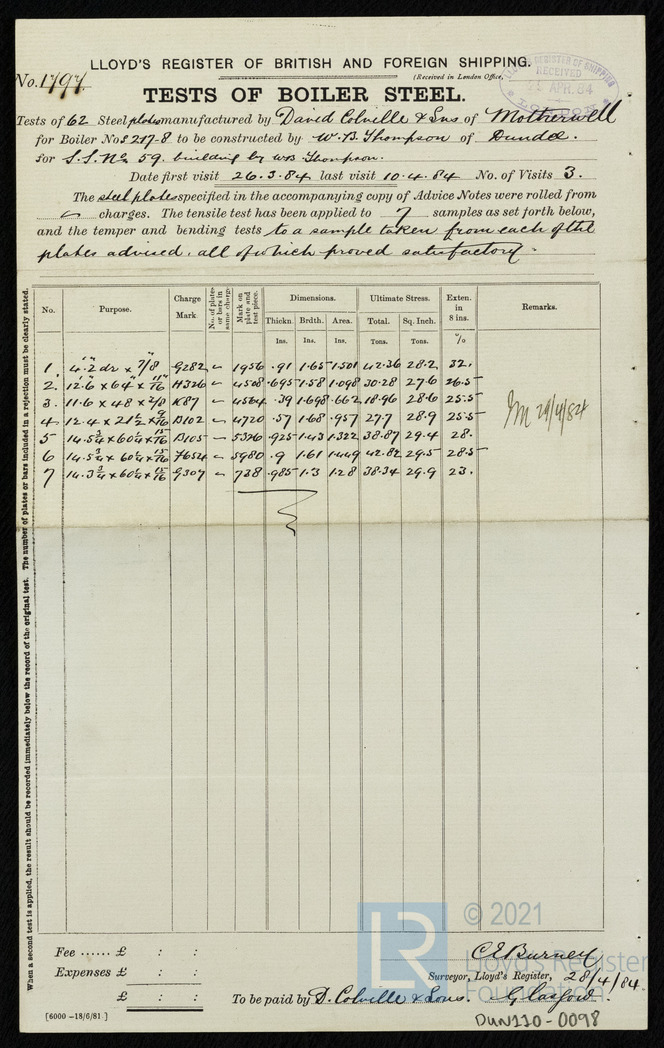 LLOYD'S REGISTER OF BRITISH AND FOREIGN SHIPPING.
No. 1797. (Received in London Office,
LLOYD'S REGISTER OF SHIPPING RECEIVED APR. 84 LONDON
TESTS OF BOILER STEEL.
Tests of 62 Steel plates manufactured by David Colville & Sons of Motherwell
for Boiler Nos 217-8 to be constructed by W.B. Thompson of Dundee.
for S.S. No 59. building by WB Thompson.
Date first visit 26.3.84 last visit 10.4.84 No. of Visits 3.
The steel plates specified in the accompanying copy of Advice Notes were rolled from
charges. The tensile test has been applied to 7 samples as set forth below,
and the temper and bending tests to a sample taken from each of the
plates advised, all of which proved satisfactory.
When a second test is applied, the result should be recorded immediately below the record of the original test. The number of plates or bars included in a rejection must be clearly stated.
No. Purpose. Charge Mark. No. of plates or bars in same charge. Mark on plate and test piece. Dimensions. Ultimate Stress. Exten. in 8 ins. Remarks.
Thickn. Brdth. Area. Total. Sq. Inch.
Ins. Ins. Ins. Tons. Tons. %
1. 4.2 dr x 7/8 G282 1956 .91 1.65 1.501 42.36 28.2 32.
2. 12.6 x 64 x 11/16 H326 4508 .695 1.58 1.098 30.28 27.6 26.5
3. 11.6 x 48 x 3/8 K87 4564 .39 1.698 .662 18.96 28.6 25.5
4. 12.4 x 21 1/2 x 9/16 B102 4720 .57 1.68 .957 27.7 28.9 25.5
5 14.5 3/4 x 60 1/4 x 15/16 B105 5326 .925 1.43 1.322 38.87 29.4 28.
6 14.5 3/4 x 60 1/4 x 15/16 7654 5980 .9 1.61 1.449 42.82 29.5 28.5
7 14.3 3/4 x 60 1/4 x 15/16 G307 738 .985 1.3 1.28 38.34 29.9 23.
29/4/84
Fee ...... £ : :
Expenses £ : :
£ : :
C E Burney
Surveyor, Lloyd's Register, 28/4/84.
To be paid by D. Colville & Sons. Glasgow.
[6000 -18/6/81.]
DUN110-0098
LR © 2021
Lloyd's Register
Foundation